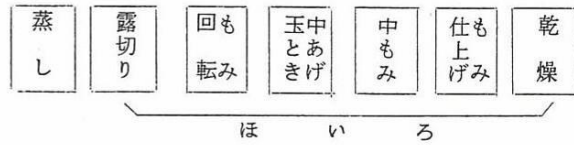 蒸し
露切り
回転
もみ
玉とき
中あげ
中もみ
仕上げ
もみ
乾燥
ほいろ